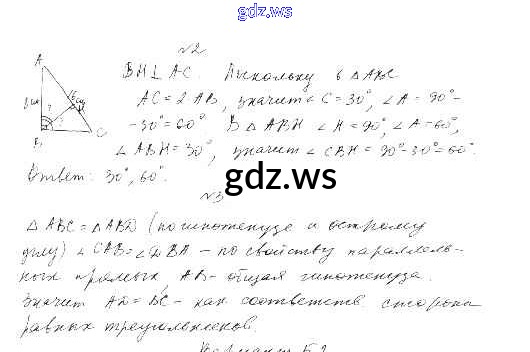 gdz.ws
№2
BH⊥AC. Поскольку в △ABC
AC = 2AB, значит ∠C = 30°, ∠A = 90°-
-30° = 60°. В △ABH ∠H = 90°, ∠A = 60°,
∠ABH = 30°, значит ∠CBH = 90°-30° = 60°.
Ответ: 30°, 60°.
gdz.ws
№3
△ABC = △ABD (по гипотенузе и острому
углу) ∠CAB = ∠DBA - по свойству параллель-
ных прямых, AB - общая гипотенуза.
Значит AD = BC - как соответств. стороны
равных треугольников.
A
B
C